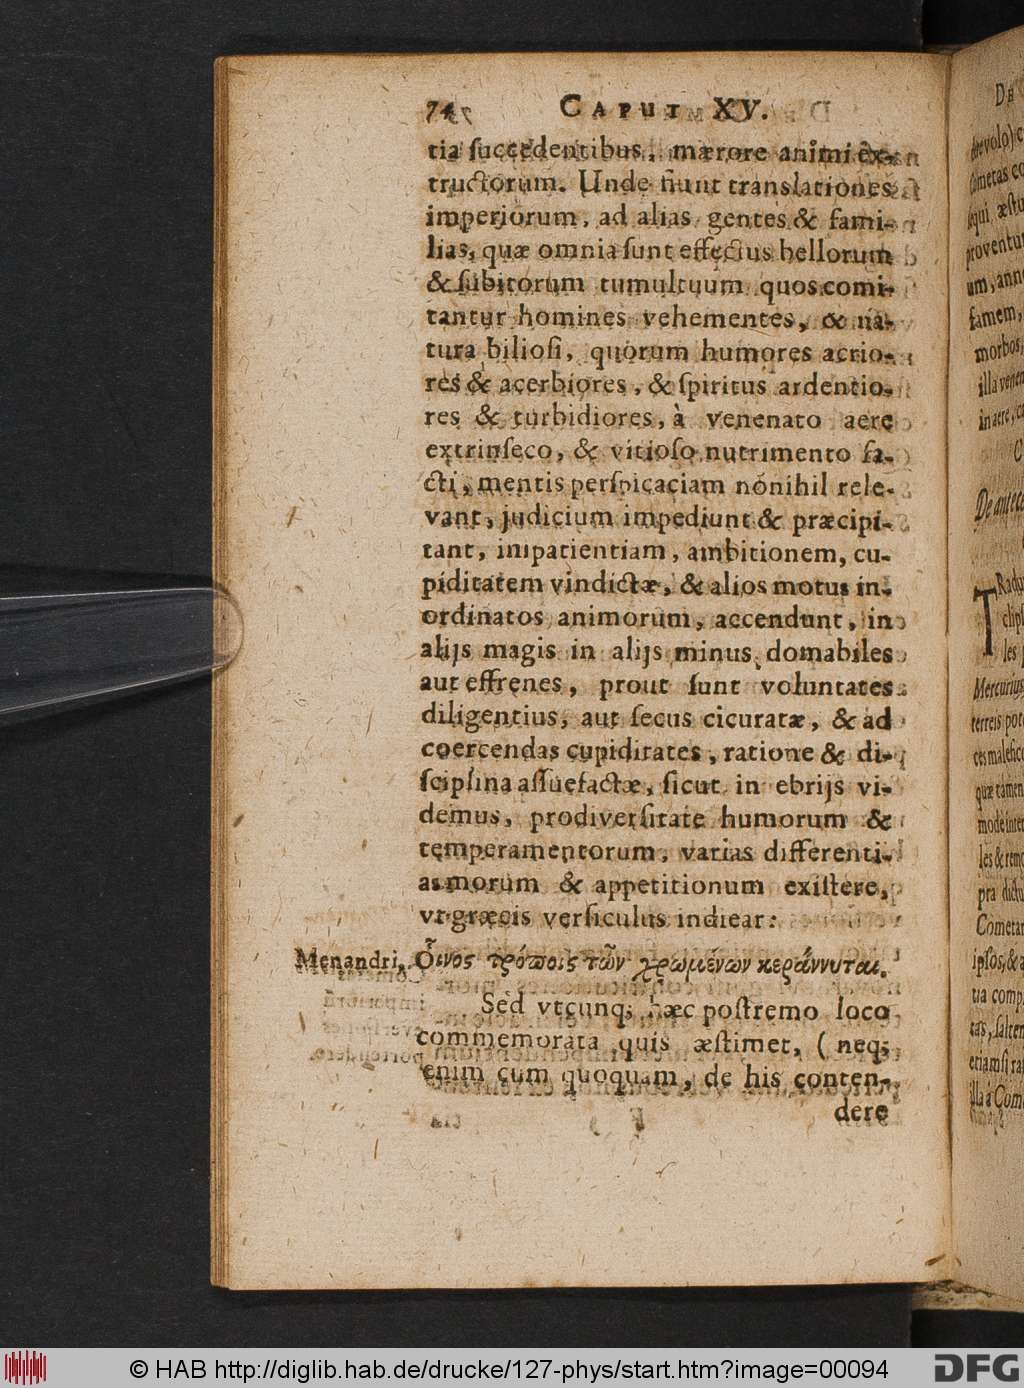 74 CAPUT XV.
tia succedentibus, mærore animi ex-
tructorum. Unde fiunt translationes
imperiorum, ad alias gentes & fami-
lias, quæ omnia sunt effectus bellorum
& subitorum tumultuum quos comi-
tantur homines vehementes, & na-
tura biliosi, quorum humores acrio-
res & acerbiores, & spiritus ardentio-
res & turbidiores, à venenato aere
extrinseco, & vitioso nutrimento fa-
cti, mentis perspicaciam nónihil rele-
vant, judicium impediunt & præcipi-
tant, impatientiam, ambitionem, cu-
piditatem vindictæ, & alios motus in-
ordinatos animorum, accendunt, in
alijs magis in alijs minus domabiles
aut effrenes, prout sunt voluntates
diligentius, aut secus cicuratæ, & ad
coercendas cupiditates, ratione & di-
sciplina assuefactæ, sicut in ebrijs vi-
demus, prodiversitate humorum &
temperamentorum, varias differenti-
as morum & appetitionum existere,
vt græcis versiculus indicar:
Menandri. Οἶνος τρόποις τῶν χρωμένων κεράννυται.
Sed vtcunq; hæc postremo loco
commemorata quis æstimet, (neq;
enim cum quoquam, de his conten-
dere
DE
devolo)
cometas co
sequi, æstu
proventu
um, anno
famem,
morbos,
illa venen
in aere,
De antece
TRadu
clips
les
Mercurius
terreis pot
ces malefic
quæ tamen
mode inter
les & remo
pra dictu
Cometar
ipsos, & a
tia comp
tas, salten
etiamsi ra
illa à Com
© HAB http://diglib.hab.de/drucke/127-phys/start.htm?image=00094
DFG